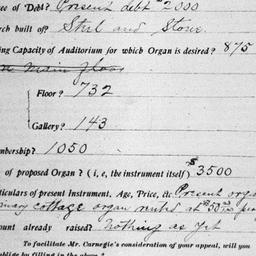 ee of Debt? Present debt $2000
rch built of? Steel and Stone.
ing Capacity of Auditorium for which Organ is desired? 875
on main floor
Floor? 732
Gallery? 143
mbership? 1050
of proposed Organ? (i, e, the instrument itself) $3500
rticulars of present Instrument, Age, Price, &c Present orga
cottage organ rented at $50.00 per
ount already raised? Nothing as yet
To facilitate Mr. Carnegie's consideration of your appeal, will you
oblige by filling in the above